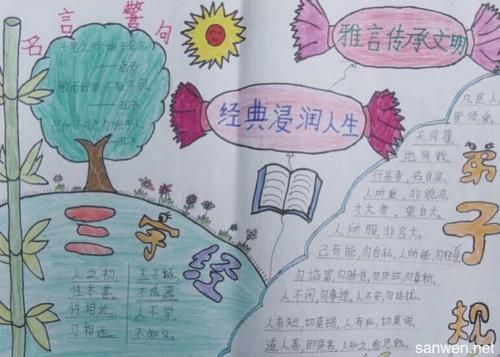 名言警句
千里之行，始于足下。
——老子
敏而好学，不耻下问。
——孔子
己所不欲，勿施于人。
雅言传承文明
经典浸润人生
三字经
人之初
性本善。
性相近，
习相远。
玉不琢，
不成器。
人不学，
不知义。
弟子规
凡是人，
皆须爱。
天同覆，
地同载。
行高者，名自高，
人所重，非貌高。
才大者，望自大，
人所服，非言大。
己有能，勿自私，人所能，勿轻訾。
勿谄富，勿骄贫，勿厌故，勿喜新。
人不闲，勿事搅，人不安，勿话扰。
人有短，切莫揭，人有私，切莫说。
道人善，即是善，人知之，愈思勉。
sanwen.net